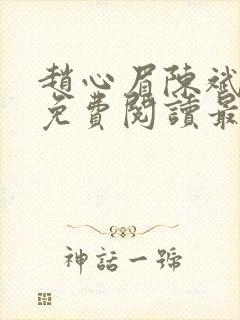 趙心眉陳斌
免費閱讀最
神話一號